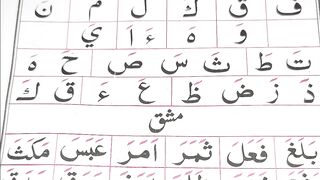 ف ق ك ل م ن
و ه ء ا ي
تَ طَ ثَ سَ صَ حَ هَ
ذَ زَ ضَ ظَ عَ ءَ قَ كَ
مشق
بَلَغَ فَعَلَ ثَمَرَ اَمَرَ عَبَسَ مَكَثَ